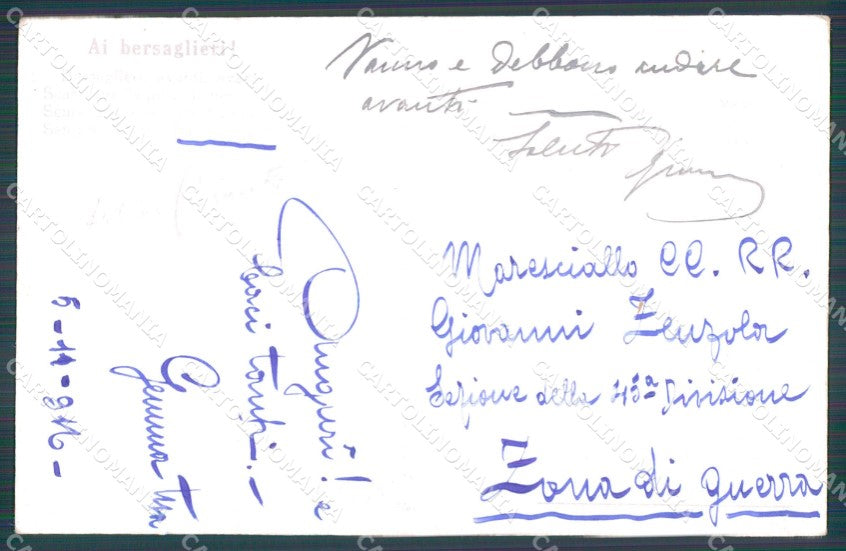 Ai bersaglieri!
Vanno e debbono andare
avanti
Saluti
Maresciallo CC. RR.
Giovanni Zenzola
Sezione della 43ª Divisione
Zona di guerra
Auguri! e
baci tanti.-
Gemma tua
5-11-916-
CARTOLINOMANIA